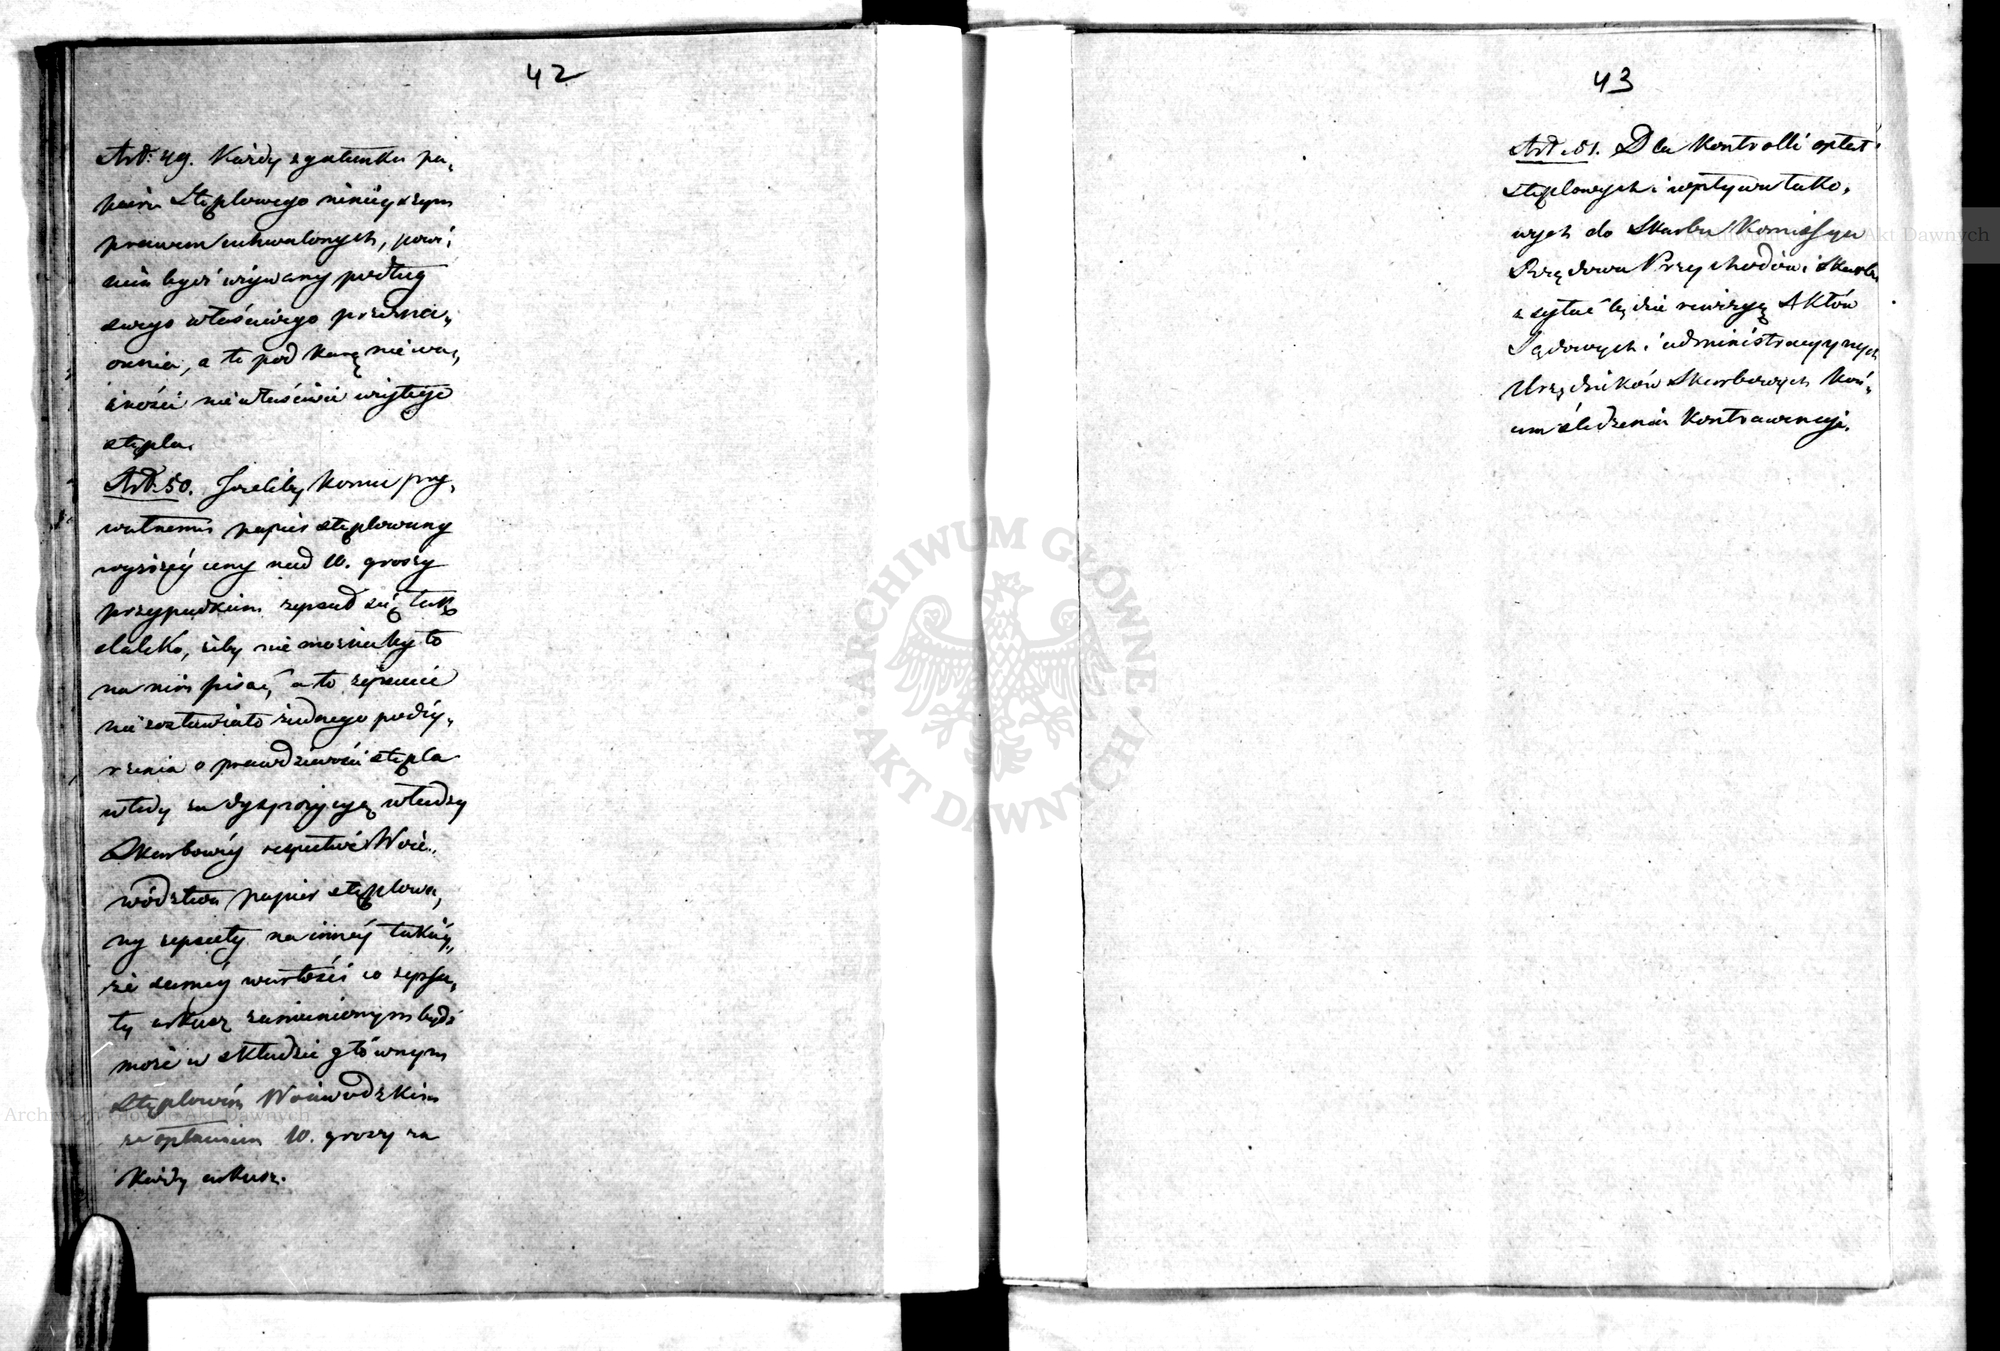 42
Art: 49. Każdy z gatunku pa-
pieru Stęplowego ninieyszym
prawem uchwalonych, powi-
nien bydź używany podług
swego właściwego przezna-
czenia, a to pod karą nieważ-
żności niewłaściwie użytego
stępla.
Art: 50. Jeżeliby komu pry-
watnemu papier stęplowany
wyższéy ceny nad 10. groszy
przypadkiem zepsuł się tak
daleko, żeby nie można by to
na nim pisać, a to zepsucie
nie zostawiało żadnego podéy-
rzenia o prawdziwości stępla
wtedy za dyspozycyą władzy
Skarbowéy respective Woie-
wództwa papier stęplowa-
ny zepsuty na innéy takiéy
że saméy wartości co zepsu-
ty arkusz zamienionym bydź
może w składzie głównym
Stęplowém Woiewodzkim
za opłaceniem 10. groszy za
każdy arkusz.
43
Art. 51. Dla kontrolli opłat
stęplowych i wpływu tako-
wych do Skarbu Kommissya
Rządowa Przychodów i Skarbu
zsyłać będzie rewizyą Aktów
Sądowych i administracyynych
Urzędników Skarbowych koń-
cem śledzenia kontrawencyi.
ARCHIWUM GŁÓWNE
AKT DAWNYCH
Archiwum Główne Akt Dawnych
Akt Dawnych